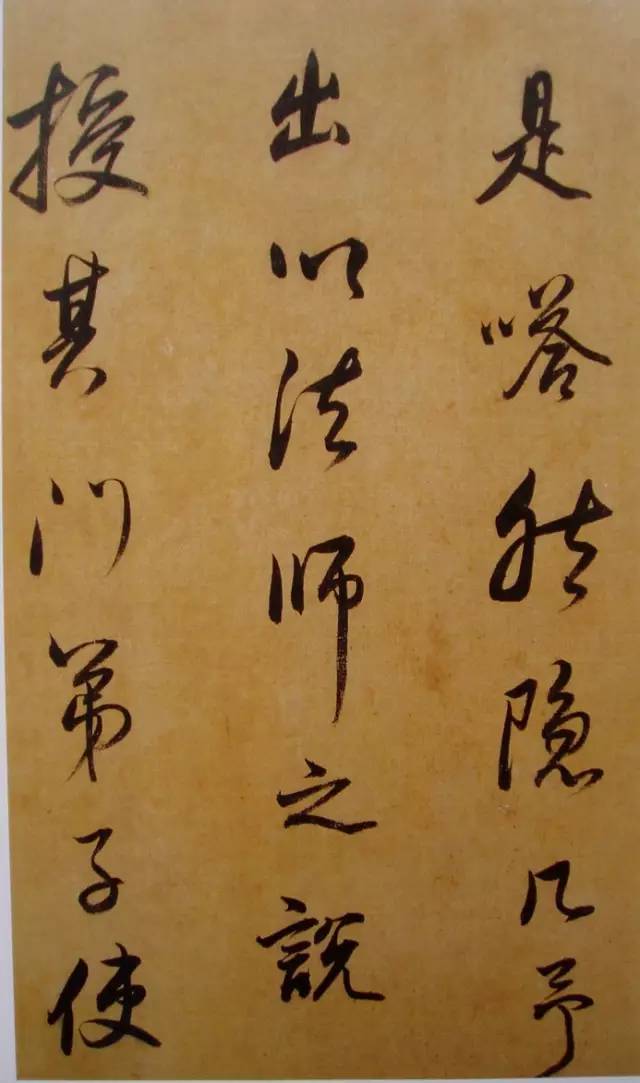 是嗒然隐几予
出以法师之说
授其门弟子使